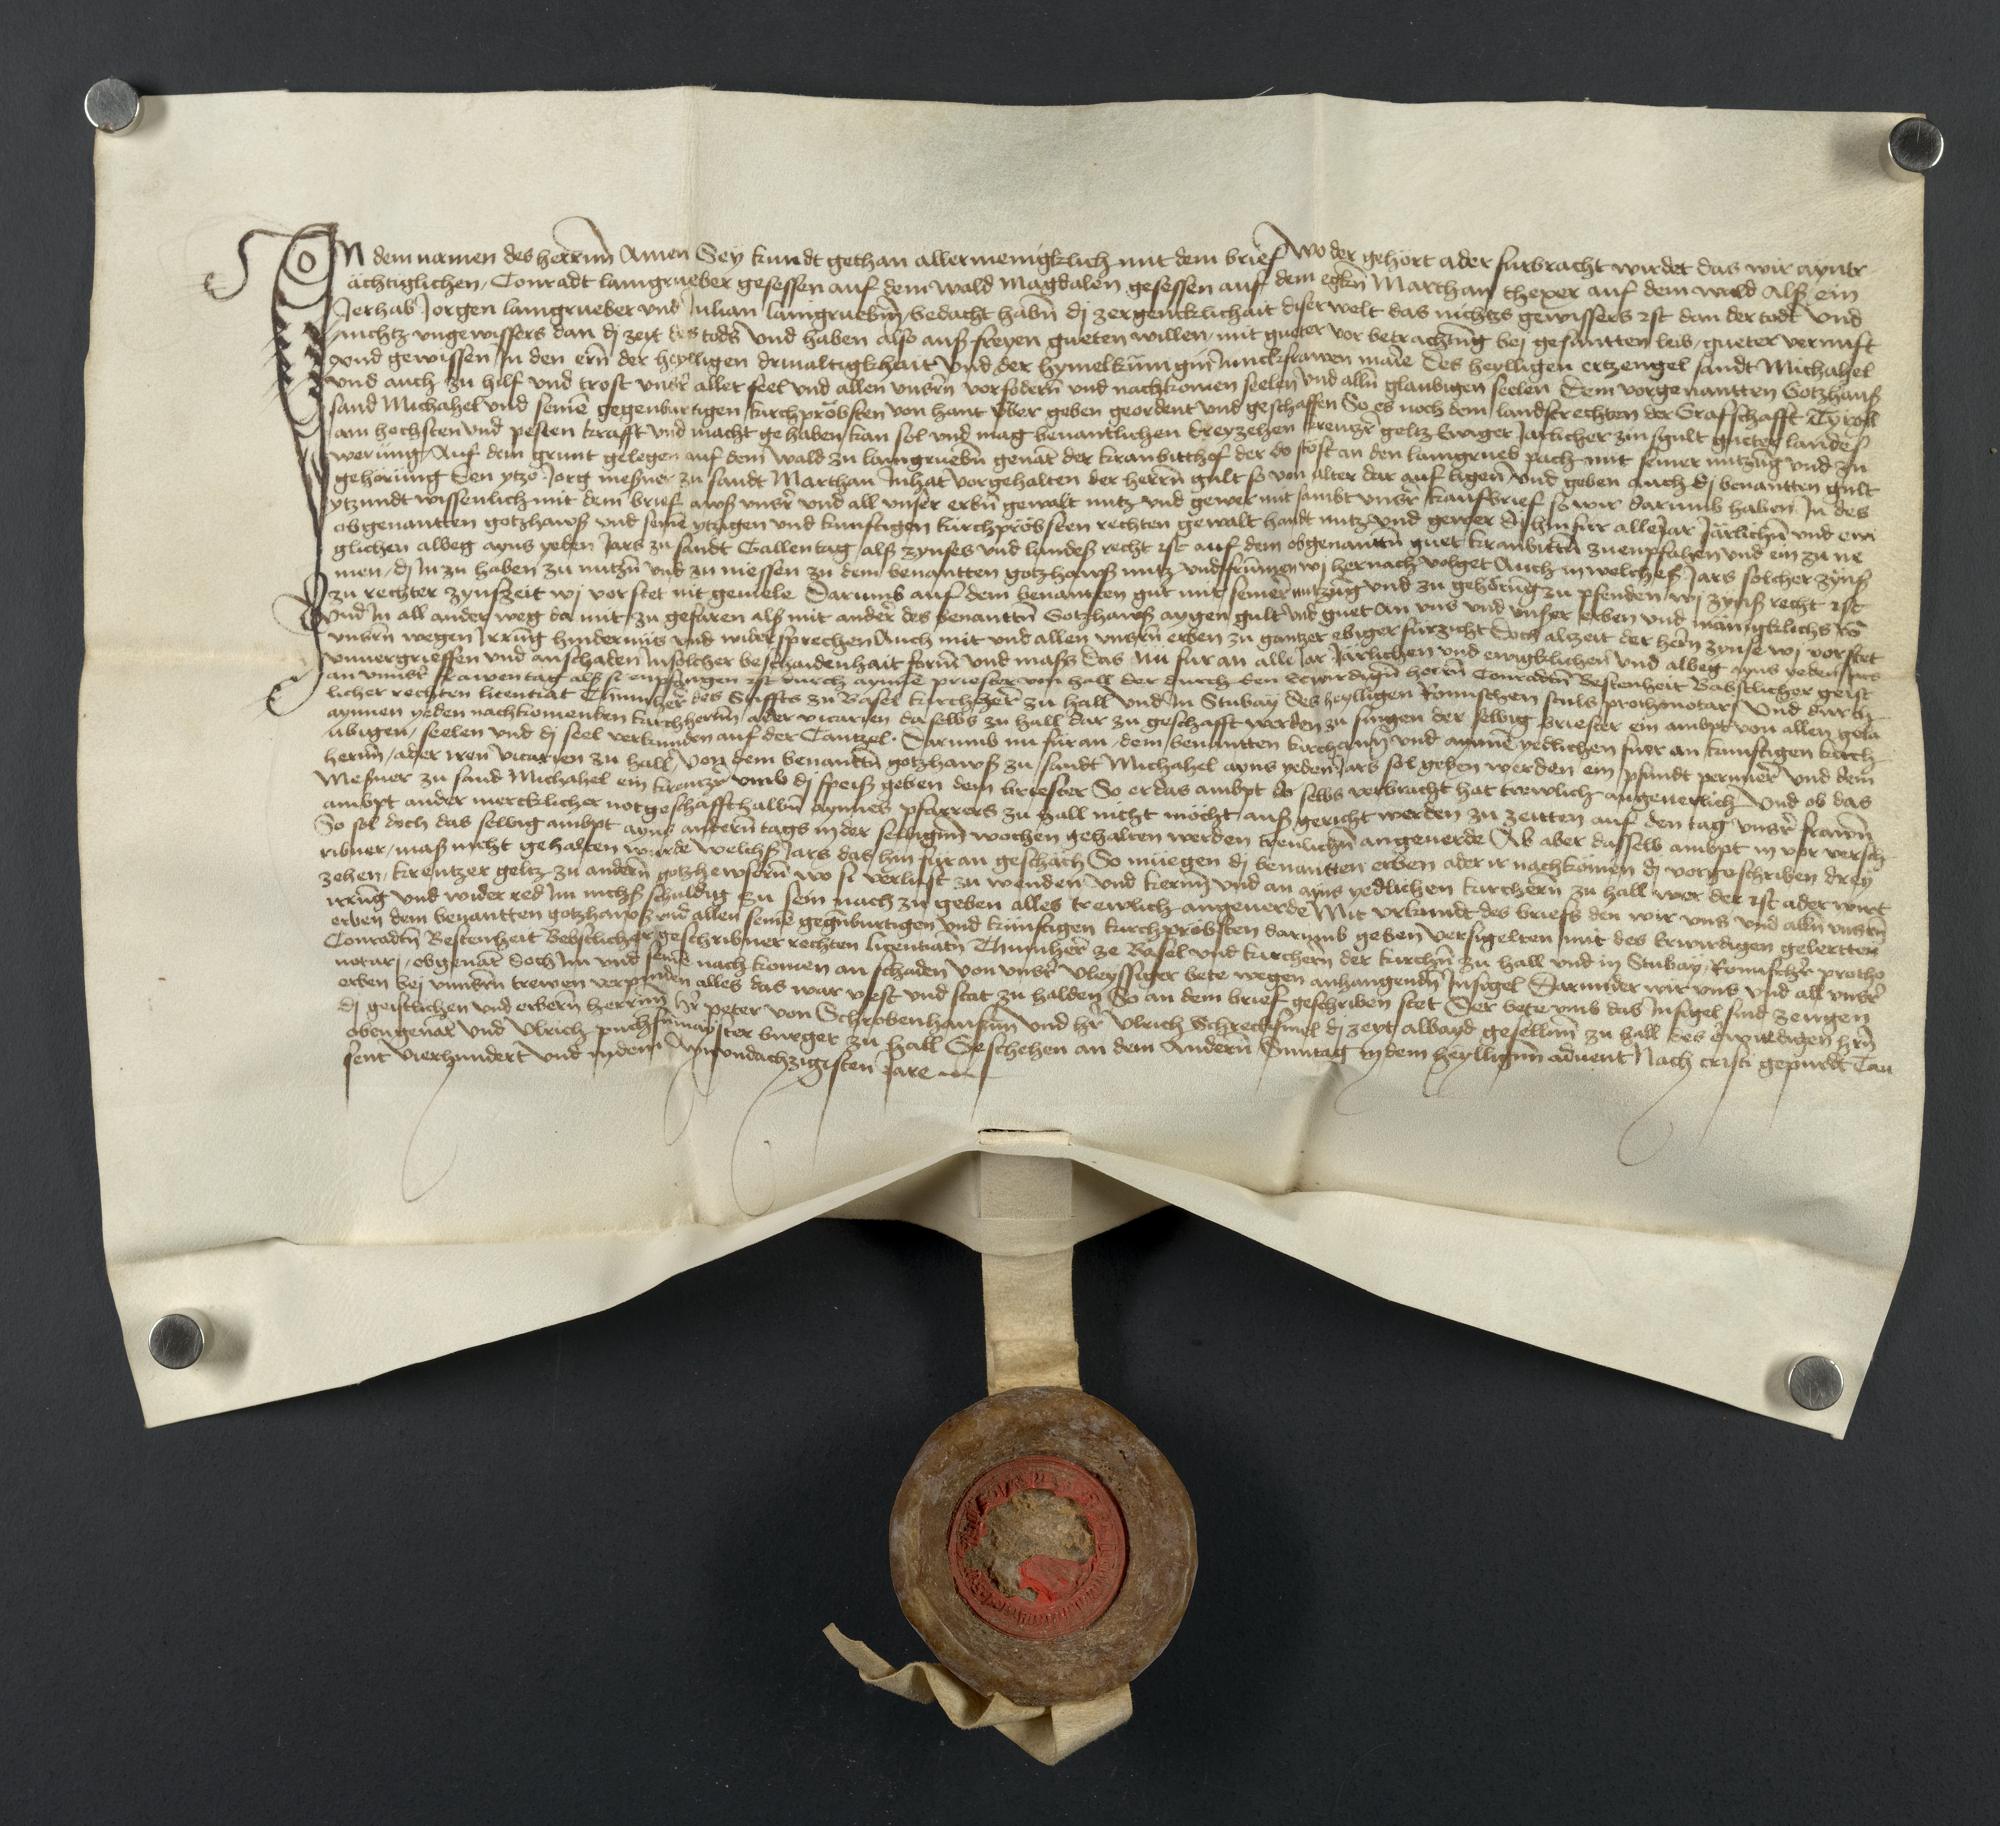 In dem namen des herrnn Amen Sey kundt gethan allermenigklich mit dem brief Wo der gehört ader furbracht wirdet das wir ayntr
ächtiglichen, Conradt laimgrueber gesessen auf dem wald Magdalen gesessen auf dem egkn Marthan theyer auf dem wald Alß ein
Jerhab Jorgen laimgrueber und Julian laimgruebin, bedacht habn dj zergencklichait diser welt das nichtzs gewissers ist dan der todt Und
nichtz ungewissers dan dj zeit des tods Und haben also auß freyen gueten willen, mit gueter vor betrachtung bej gesuntten leib, gueter vernuft
und gewissen In den ern der heylligen drinaltigkhait Und der hymelkünigin Junckfrawen marie Des heylligen ertzengel sandt Michahel
und auch zu hilf und trost unsr aller seel und allen unsrn vorfodern und nachkomen seelen Und alln glaubigen seelen Dem vorgenantten Gotzhauß
sand Michahel und seine gegenburtigen kirchpröbsten von hant uber geben geordent und geschaffen So es noch dem landsrechten der Grafschafft Tyroll
am hochsten und pesten krafft und macht gehaben kan sol und mag benantlichen dreyzehen kreutzr geltz Ewiger Jarlicher zinsgult gueter landes
werung, Auf dem grunt gelegen auf dem wald zu laimgruebn genāt der kranbitthof der do stöst an den laimgrueb pach mit seiner nutzūg und zu
gehörung Den ytzo Jorg meßner zu sandt Marthan Inhat Vorgehalten der herrn gult so von alter dar auf ligen Und geben auch dj benantten gult
ytzundt wissenlich mit dem brief awß unsr und all unser erbn gewalt nutz und gewer mit sambt unsr kaufbrief so wir darumb haben In des
obgenantten gotzhawß und seine ytzigen und kunftigen kirchpröbsten rechten gewalt handt nutz und gewer dj hinfur alle Jar Järlichn und ewi
glichen albeg ayns yeden Jars zu sandt Gallentag alß zynses und landeß recht ist auf dem obgenantn guet kranbittn zu enpfahen und ein zu ne
men, dj In zu haben zu nutzn und zu niessen zu dem benantten gotzhawß nutz und frummen wj hernach volget Auch in welcheß Jars solcher zynß
zu rechter zynßzeit wj vor stet nit geuiele Darumb auf dem benantten gut mit seiner nutzūg und zu gehörūg zu pfenden wj zynß recht ist
Und In all ander weg da mit zu gefaren alß mit ander des benanttn Gotzhawß aygen gult und guet An uns und unser erben und mänigklichs vō
unsrn wegen Irrūg hindernüs und widersprechen Auch mit und allen unsrn erben zu gantzer ebiger fürzicht Doch alzeit der hern zynse wj vorstet
unuergriessen und anschaden Insolcher beschaidenhait form und maß das nü fur an alle Jar Järlichen und ewigklichen und albeg ayns yeden Jars
an unnsr frawen tag alß si enpfangen ist durch aynne priester von hall der durch den Erwirdign herrn Conradtn Bestenheit Babstlicher geist
licher rechten licentiat Thumher des Stiffts zu Basel kirchherr zu hall und In Stubay Des heylligen Romischen stuls prothonotari Und durch
aynnen yeden nachkomenden kirchherrn ader vicarien da selbs zu hall dar zu geschafft werden zu singen der selbig briester ein ambpt von allen gela
ubigen, seelen und dj seel verkunden auf der Cantzel. Darumb nu für an, dem benantten kirchann und aynnē yedlichen fuer an kunftigen kirch
herrn, ader iren vicarien zu hall, Von dem benanttn gotzhawß zu sandt Michahel ayns yeden Jars sol geben werden ein pfundt perner Und dem
Meßner zu sand Michahel ein kreutzr umb dj speiß geben dem briester So er das ambpt do selbs verbracht hat trewlich angeuerlich Und ob das
ambpt ander mercklicher notgeschaffthalbn aynnes pfarrers zu hall nicht möcht auß gericht werden zu zeitten auf den tag unsr frawn
So sol doch das selbig ambpt ayns andern tags in der selbigen wochen gehalten werden treulichn angeuerde Ab aber dasselb ambpt in vor versch
ribner, maß nicht gehalten wurde welchß Jars das hin für an geschäch So müegen dj benantten erben ader ir nachkömen dj vorgeschriben drey
zehen, kreutzer geltz zu andern gotzhewsern wo si verlust zu wenden und kern und an ayns yedlichen kirchern zu hall wer der ist ader wirt
irrūg und wider red Im nichß schuldig zu sein nach zu geben alles trewlich angeuerde Mit urkundt des briefs den wir uns und alln unsrn
erben dem benantten gotzhawß und allen seine gegnburtigen und künftigen kirchpröbsten darumb geben versigelten mit des Erwirdigen gelertten
Conradtn Bestenheit Bebstlicher geschribner rechten licentiatn Thumher ze Basel und kirchern der kirchn zu hall und in Stubay, Romischer protho
notarj, obgenāt doch Im und seine nach komen an schaden von unsr vleyssiger bete wegen anhangendn Insigel Darunder wir uns und all unsr
erben bej unnsrn trewen verpinden alles das war vest und stat zu halden So an dem brief geschriben stet Der bete umb das Insigel sind zeugen
dj geistlichen und erbern herrnn Hr peter von Schrobenhausen und hr Ulrich Schreckssmel dj zeyt albayd gesellnn zu hall des erwirdigen hrn
obengenāt und Ulrich puchssmayster burger zu hall Geschehen an dem Andern Suntag in dem heylligen aduent Nach cristi gepurdt Tau
sent Vierhundert Und in dem Aynundachzigisten Jare